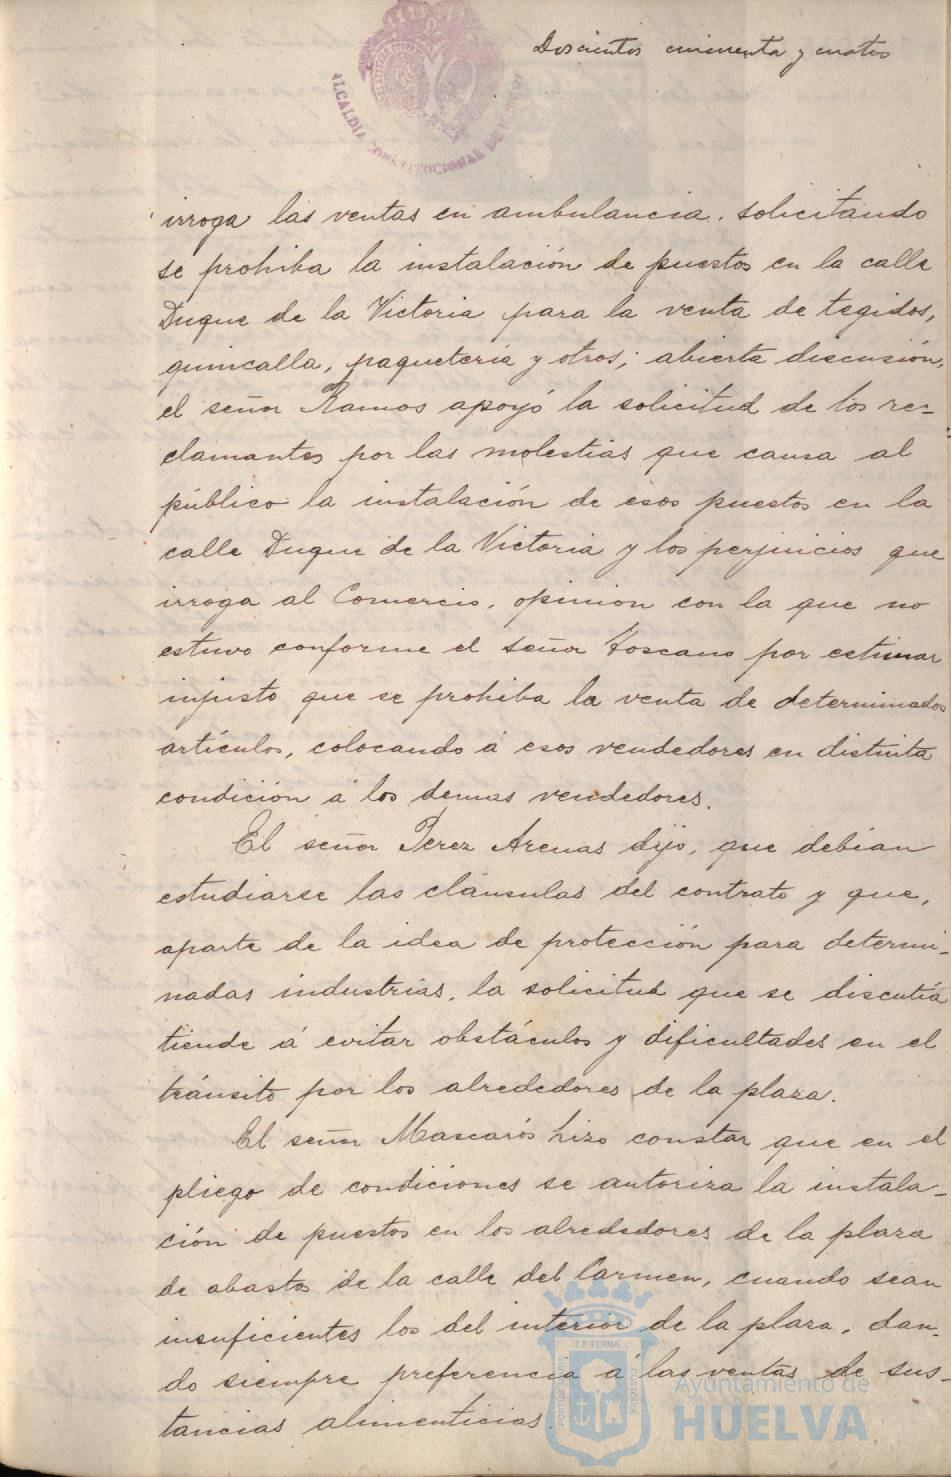 Doscientos cincuenta y cuatro
ALCALDIA CONSTITUCIONAL DE HUELVA
irroga las ventas en ambulancia, solicitando
se prohiba la instalación de puestos en la calle
Duque de la Victoria para la venta de tegidos,
quincalla, paquetería y otros; abierta discusión,
el señor Ramos apoyó la solicitud de los re-
clamantes por las molestias que causa al
público la instalación de esos puestos en la
calle Duque de la Victoria y los perjuicios que
irroga al Comercio, opinion con la que no
estuvo conforme el señor Toscano por estimar
injusto que se prohiba la venta de determinados
artículos, colocando á esos vendedores en distinta
condición á los demas vendedores.
El señor Perez Arenas dijo, que debían
estudiarse las cláusulas del contrato y que,
aparte de la idea de protección para determi-
nadas industrias, la solicitud que se discutía
tiende á evitar obstáculos y dificultades en el
tránsito por los alrededores de la plaza.
El señor Mascarós hizo constar que en el
pliego de condiciones se autoriza la instala-
ción de puestos en los alrededores de la plaza
de abastos de la calle del Carmen, cuando sean
insuficientes los del interior de la plaza, dan-
do siempre preferencia á las ventas de sus-
tancias alimenticias.
Ayuntamiento de
HUELVA